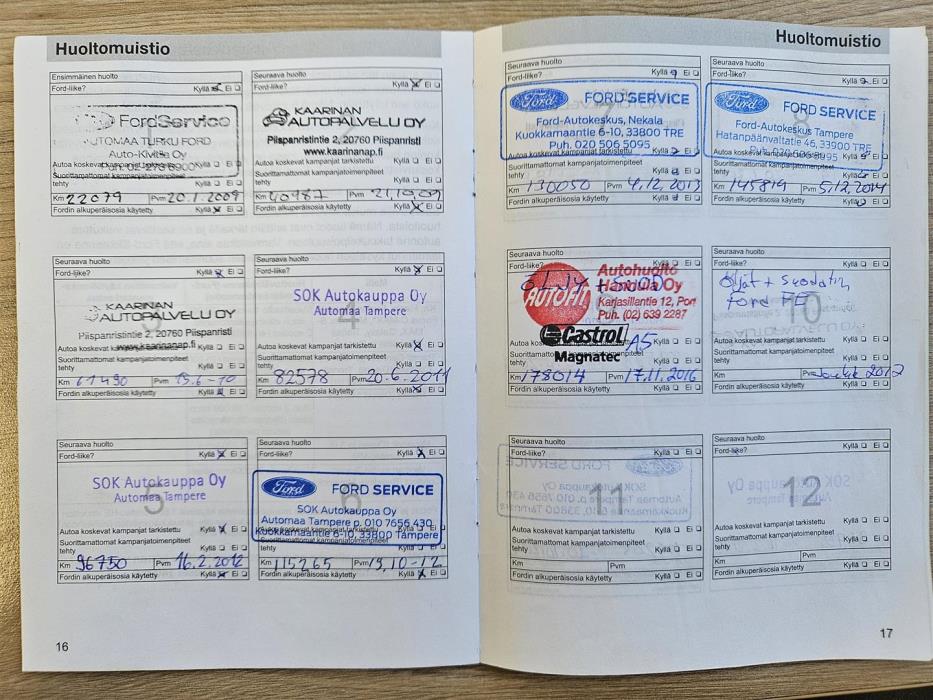 Huoltomuistio
Ensimmäinen huolto
Ford-liike? Kyllä Ei
FordService
AUTOMAA TURKU FORD
Auto-Kiviita Oy
Autoa koskevat kampanjat tarkistettu Kyllä Ei
Suorittamattomat kampanjatoimenpiteet
tehty Kyllä Ei
Km 22079 Pvm 20.1.2009
Fordin alkuperäisosia käytetty Kyllä Ei
Seuraava huolto
Ford-liike? Kyllä Ei
KAARINAN
AUTOPALVELU OY
Piispanristintie 2, 20760 Piispanristi
www.kaarinanap.fi
Autoa koskevat kampanjat tarkistettu Kyllä Ei
Suorittamattomat kampanjatoimenpiteet
tehty Kyllä Ei
Km 40987 Pvm 21.10.09
Fordin alkuperäisosia käytetty Kyllä Ei
Seuraava huolto
Ford-liike? Kyllä Ei
3
KAARINAN
AUTOPALVELU OY
Piispanristintie 2, 20760 Piispanristi
www.kaarinanap.fi
Autoa koskevat kampanjat tarkistettu Kyllä Ei
Suorittamattomat kampanjatoimenpiteet
tehty Kyllä Ei
Km 61490 Pvm 15.6-10
Fordin alkuperäisosia käytetty Kyllä Ei
Seuraava huolto
Ford-liike? Kyllä Ei
SOK Autokauppa Oy
Automaa Tampere
4
Autoa koskevat kampanjat tarkistettu Kyllä Ei
Suorittamattomat kampanjatoimenpiteet
tehty Kyllä Ei
Km 82578 Pvm 20.6.2011
Fordin alkuperäisosia käytetty Kyllä Ei
Seuraava huolto
Ford-liike? Kyllä Ei
SOK Autokauppa Oy
Automaa Tampere
5
Autoa koskevat kampanjat tarkistettu Kyllä Ei
Suorittamattomat kampanjatoimenpiteet
tehty Kyllä Ei
Km 96750 Pvm 16.2.2012
Fordin alkuperäisosia käytetty Kyllä Ei
Seuraava huolto
Ford-liike? Kyllä Ei
Ford FORD SERVICE
6
SOK Autokauppa Oy
Automaa Tampere p. 010 7656 430
Kuokkamaantie 6-10, 33800 Tampere
Autoa koskevat kampanjat tarkistettu Kyllä Ei
Suorittamattomat kampanjatoimenpiteet
tehty Kyllä Ei
Km 115265 Pvm 15.10-12
Fordin alkuperäisosia käytetty Kyllä Ei
16
Huoltomuistio
Seuraava huolto
Ford-liike? Kyllä Ei
Ford FORD SERVICE
Ford-Autokeskus, Nekala
Kuokkamaantie 6-10, 33800 TRE
Puh. 020 506 5095
Autoa koskevat kampanjat tarkistettu Kyllä Ei
Suorittamattomat kampanjatoimenpiteet
tehty Kyllä Ei
Km 130050 Pvm 4.12.2013
Fordin alkuperäisosia käytetty Kyllä Ei
Seuraava huolto
Ford-liike? Kyllä Ei
8
Ford FORD SERVICE
Ford-Autokeskus Tampere
Hatanpäänvaltatie 46, 33900 TRE
Autoa koskevat kampanjat tarkistettu Kyllä Ei
Suorittamattomat kampanjatoimenpiteet
tehty Kyllä Ei
Km 145819 Pvm 5.12.2014
Fordin alkuperäisosia käytetty Kyllä Ei
Seuraava huolto
Ford-liike? Kyllä Ei
AUTOHI
Autohuolto
Hannula Oy
Karjasillantie 12, Pori
Puh. (02) 639 2287
Castrol A5
Magnatec
Autoa koskevat kampanjat tarkistettu Kyllä Ei
Suorittamattomat kampanjatoimenpiteet
tehty Kyllä Ei
Km 178014 Pvm 17.11.2016
Fordin alkuperäisosia käytetty Kyllä Ei
Seuraava huolto
Ford-liike? Kyllä Ei
Öljyt + Suodatin
Ford FE
10
Autoa koskevat kampanjat tarkistettu Kyllä Ei
Suorittamattomat kampanjatoimenpiteet
tehty Kyllä Ei
Km Pvm
Fordin alkuperäisosia käytetty Kyllä Ei
Seuraava huolto
Ford-liike? Kyllä Ei
11
Autoa koskevat kampanjat tarkistettu Kyllä Ei
Suorittamattomat kampanjatoimenpiteet
tehty Kyllä Ei
Km Pvm
Fordin alkuperäisosia käytetty Kyllä Ei
Seuraava huolto
Ford-liike? Kyllä Ei
12
Autoa koskevat kampanjat tarkistettu Kyllä Ei
Suorittamattomat kampanjatoimenpiteet
tehty Kyllä Ei
Km Pvm
Fordin alkuperäisosia käytetty Kyllä Ei
17